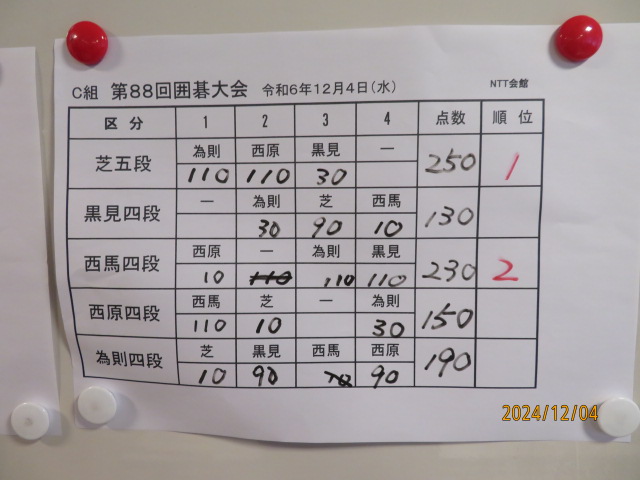 C組 第88回囲碁大会 令和6年12月4日(水) NTT会館
区分 1 2 3 4 点数 順位
芝五段 為則 西原 黒見 ー 250 1
110 110 30
黒見四段 ー 為則 芝 西馬 130
30 90 10
西馬四段 西原 ー 為則 黒見 230 2
10 110 110 110
西原四段 西馬 芝 ー 為則 150
110 10 30
為則四段 芝 黒見 西馬 西原 190
10 90 90
2024/12/04